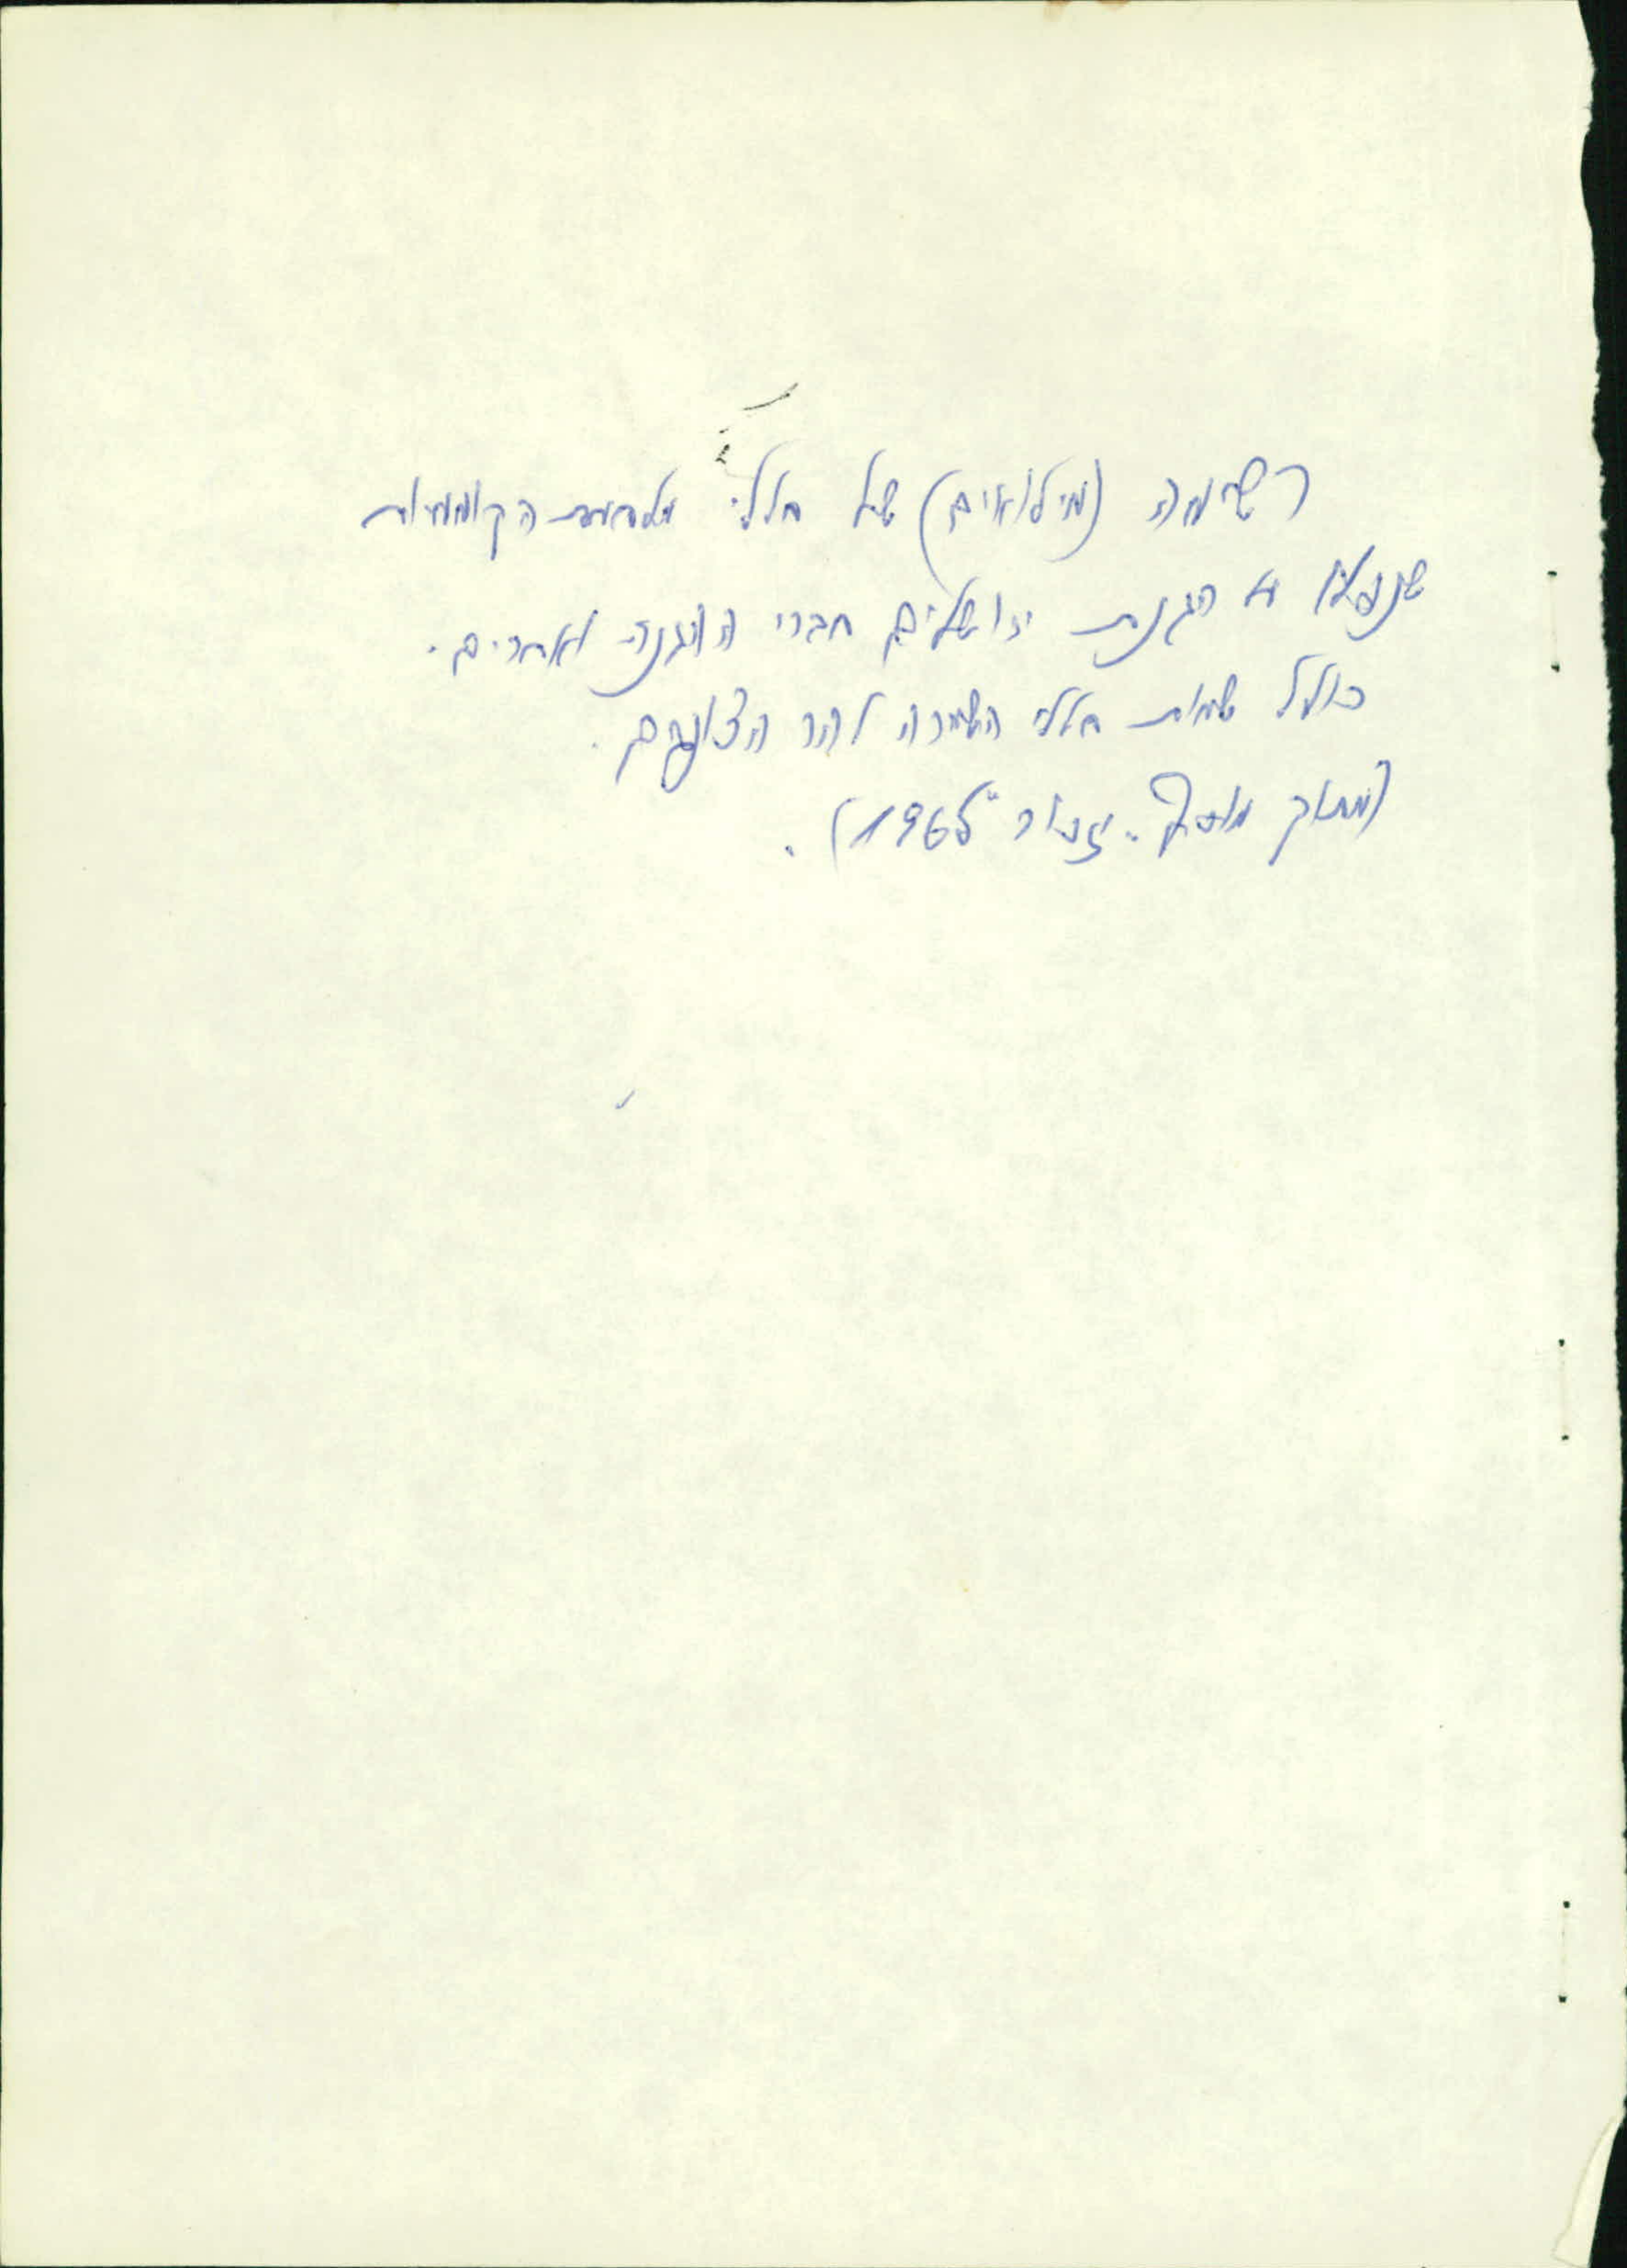 רשימה (מילואים) של חללי מלחמת הקוממיות
שנפלו הגנת ירושלים חברי ההגנה ואחרים.
כולל שמות חללי השיירה להר הצופים.
(מתוך מוסף "יזכור" 1965).